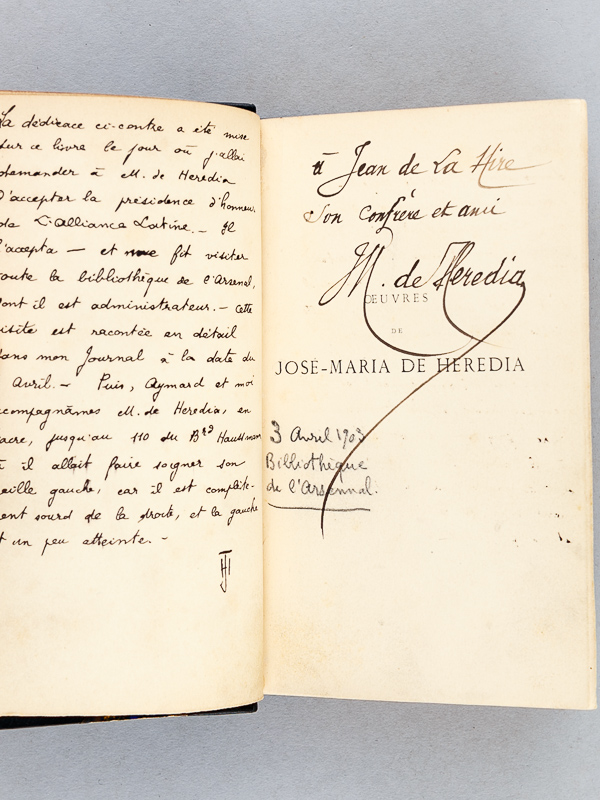 La dédicace ci-contre a été mise
sur ce livre le jour où j'allai
demander à M. de Heredia
D'accepter la présidence d'honneur
de L'Alliance Latine. — Il
l'accepta — et me fit visiter
toute la bibliothèque de l'Arsenal,
dont il est administrateur. — Cette
visite est racontée en détail
dans mon Journal à la date du
Avril. — Puis, Aymard et moi
accompagnâmes M. de Heredia, en
fiacre, jusqu'au 110 du Bd Haussmann
où il allait faire soigner son
oreille gauche, car il est complète-
ment sourd de la droite, et la gauche
est un peu atteinte. —
à Jean de La Hire
Son confrère et ami
M. de Heredia
ŒUVRES
DE
JOSÉ-MARIA DE HEREDIA
3 Avril 1903
Bibliothèque
de l'Arsennal.